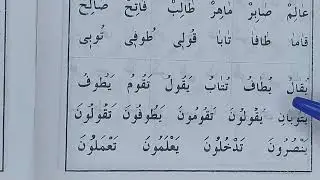 عَالِمٌ صَابِرٌ مَاهِرٌ طَالِبٌ فَاتِحٌ صَالِحٌ
قَامَا طَافَا تَابَا قُولِى طُوفِى تُوبِى
يُقَالُ يُطَافُ يُتَابُ يَقُولُ تَقُومُ يَطُوفُ
يَتُوبَانِ يَقُولُونَ تَقُومُونَ يَطُوفُونَ تَقُولُونَ
يَنْصُرُونَ تَدْخُلُونَ يَعْلَمُونَ تَعْمَلُونَ